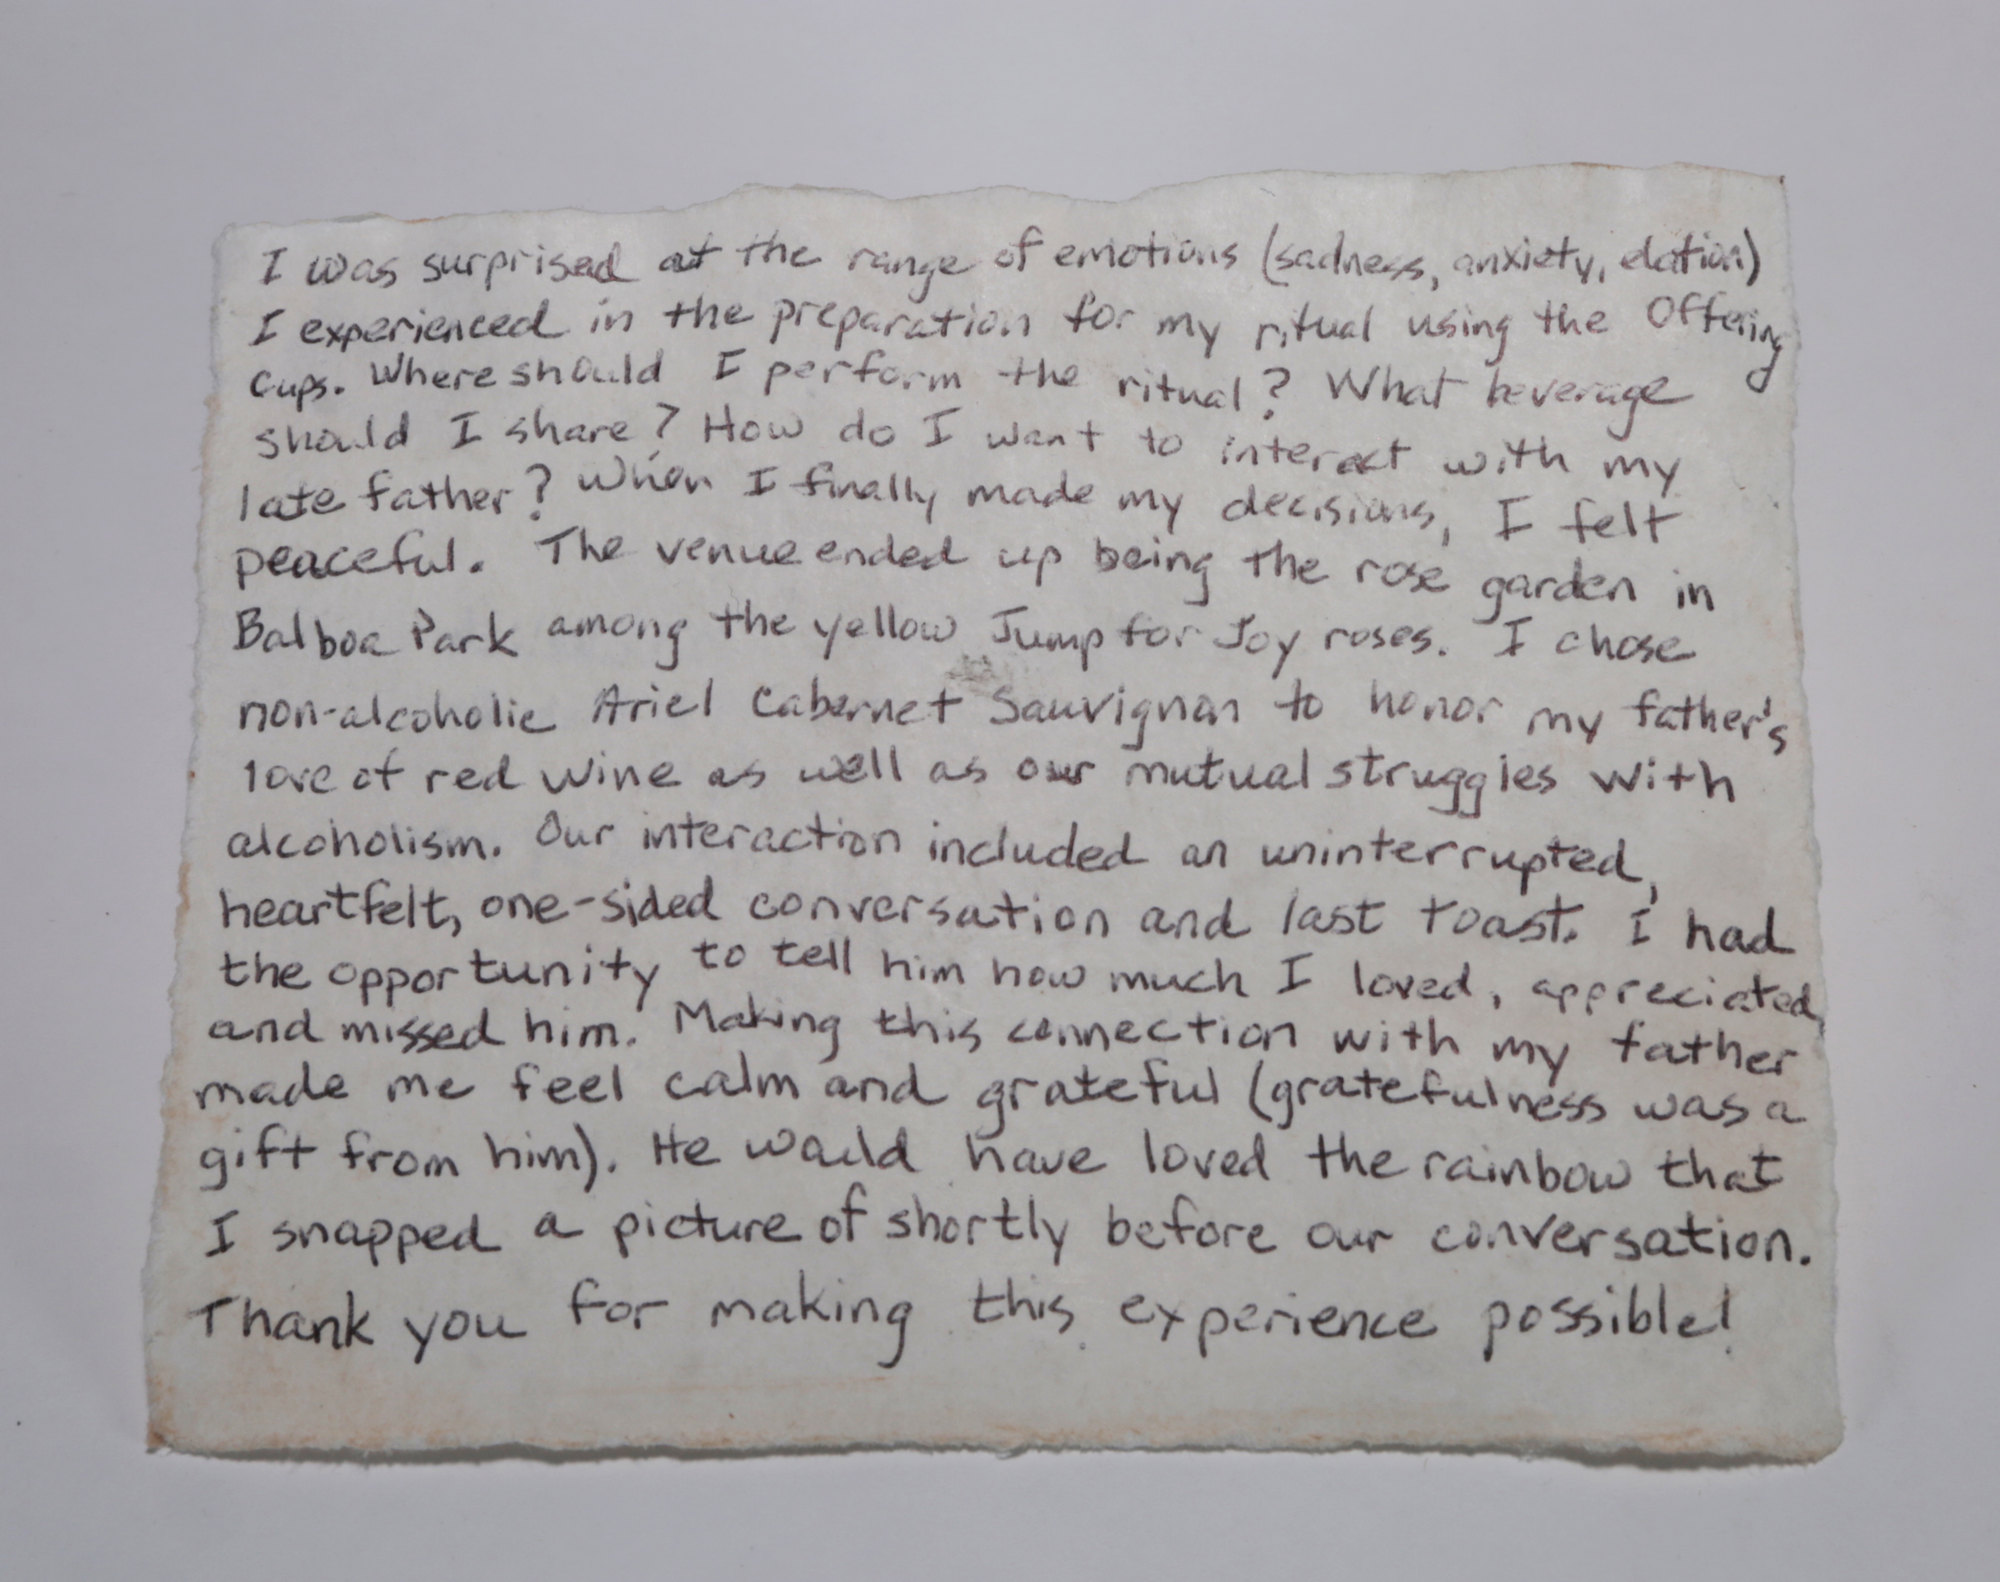 I was surprised at the range of emotions (sadness, anxiety, elation)
I experienced in the preparation for my ritual using the Offering
Cups. Where should I perform the ritual? What beverage
should I share? How do I want to interact with my
late father? When I finally made my decisions, I felt
peaceful. The venue ended up being the rose garden in
Balboa Park among the yellow Jump for Joy roses. I chose
non-alcoholic Ariel Cabernet Sauvignon to honor my father's
love of red wine as well as our mutual struggles with
alcoholism. Our interaction included an uninterrupted,
heartfelt, one-sided conversation and last toast. I had
the opportunity to tell him how much I loved, appreciated,
and missed him. Making this connection with my father
made me feel calm and grateful (gratefulness was a
gift from him). He would have loved the rainbow that
I snapped a picture of shortly before our conversation.
Thank you for making this experience possible!